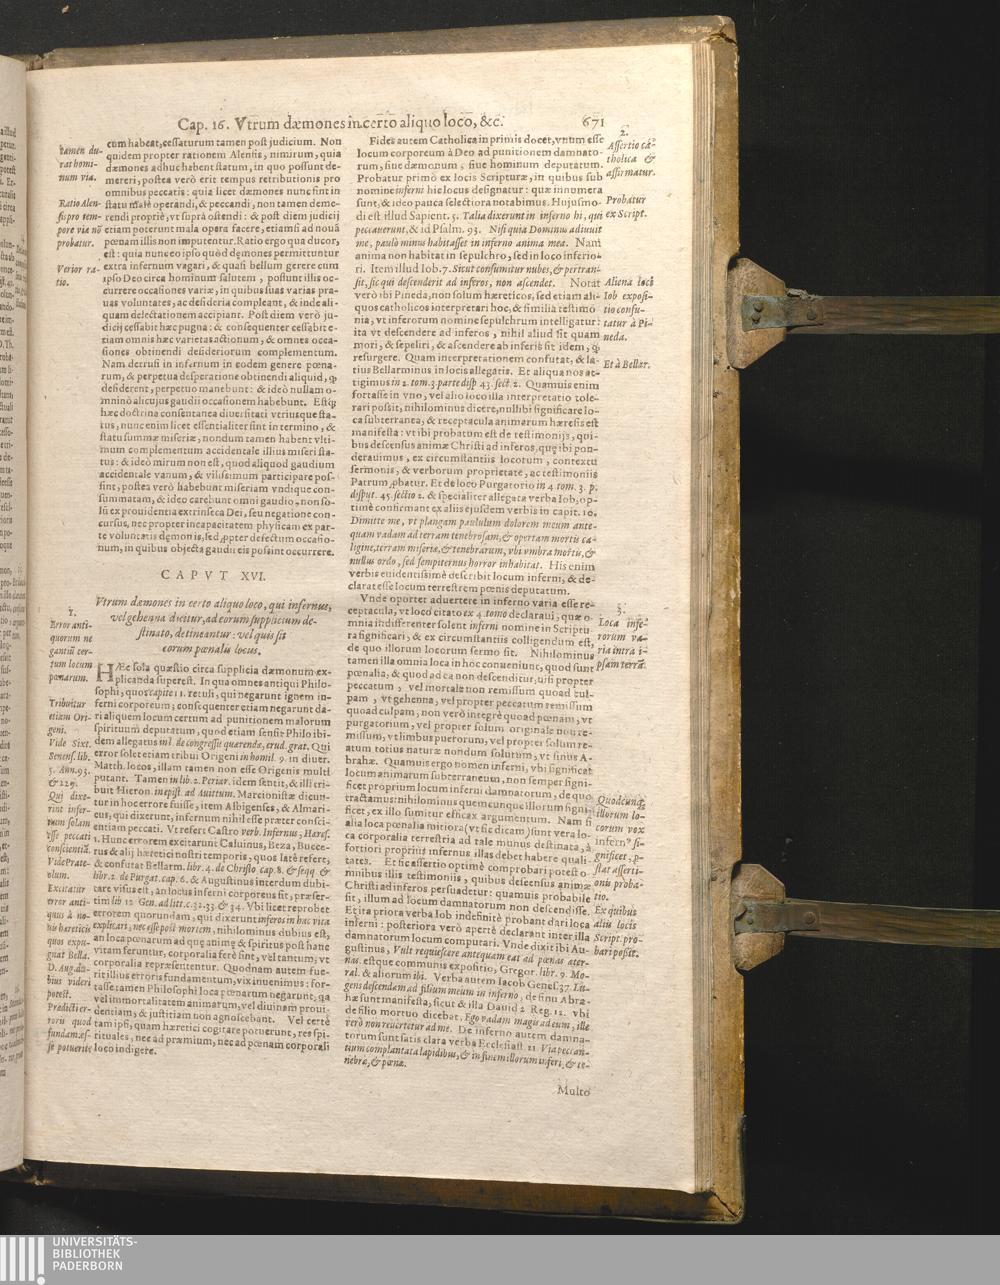 Cap. 16. Vtrum dæmones in certo aliquo loco, &c. 671
tamen du-
rat homi-
num via.
Ratio Alen-
sis pro tem-
pore via nō
probatur.
Verior ra-
tio.
cum habeat, cessaturum tamen post judicium. Non
quidem propter rationem Alensis, nimirum, quia
dæmones adhuc habent statum, in quo possunt de-
mereri, postea verò erit tempus retributionis pro
omnibus peccatis: quia licet dæmones nunc sint in
statu malè operandi, & peccandi, non tamen deme-
rendi propriè, vt suprà ostendi: & post diem judicij
etiam poterunt mala opera facere, etiamsi ad nouā
pœnam illis non imputentur. Ratio ergo qua ducor,
est: quia nunc eo ipso quòd dęmones permittuntur
extra infernum vagari, & quasi bellum gerere cum
ipso Deo circa hominum salutem, possunt illis oc-
currere occasiones variæ, in quibus suas varias pra-
uas voluntates, ac desideria compleant, & inde ali-
quam delectationem accipiant. Post diem verò ju-
dicij cessabit hæc pugna: & consequenter cessabit e-
tiam omnis hæc varietas actionum, & omnes occa-
siones obtinendi desideriorum complementum.
Nam detrusi in infernum in eodem genere pœna-
rum, & perpetua desperatione obtinendi aliquid, ꝙ
desiderent, perpetuo manebunt: & ideò nullam o-
mninò alicujus gaudii occasionem habebunt. Estq́
hæc doctrina consentanea diuersitati vtriusque sta-
tus, nunc enim licet essentialiter sint in termino, &
statu summæ miseriæ, nondum tamen habent vlti-
mum complementum accidentale illius miseri sta-
tus: & ideò mirum non est, quod aliquod gaudium
accidentale vanum, & vilissimum participare pos-
sint, postea verò habebunt miseriam vndique con-
summatam, & ideo carebunt omni gaudio, non so-
lù ex prouidentia extrinseca Dei, seu negatione con-
cursus, nec propter incapacitatem physicam ex par-
te voluntatis dęmonis, sed ꝓpter defectum occasio-
num, in quibus objecta gaudii eis possint occurrere.
CAPVT XVI.
Vtrum dæmones in certo aliquo loco, qui infernus,
vel gehenna dicitur, ad eorum supplicium de-
stinato, detineantur: vel quis sit
eorum pœnalis locus.
1.
Error anti-
quorum ne
gantiū cer-
tum locum
pœnarum.
Tribuitur
etiam Ori-
geni.
Vide Sixt.
Senens. lib.
5. Ann. 93.
& 229.
Qui dixe-
rint infer-
num solam
esse peccati
conscientiā.
Vide Prate-
olum.
Excitatur
error anti-
quus à no-
vis hæreticis
quos expu-
gnat Bella.
D. Aug. du-
bius videri
potest.
Prædicti er-
roris quod
fundam. es-
se potuerit
HÆc sola quæstio circa supplicia dæmonum ex-
plicanda superest. In qua omnes antiqui Philo-
sophi, quos capite 11. retuli, qui negarunt ignem in-
ferni corporeum; consequenter etiam negarunt da-
ri aliquem locum certum ad punitionem malorum
spirituum deputatum, quod etiam sensit Philo ibi-
dem allegatus in l. de congressu quærendæ, erud. grat. Qui
error solet etiam tribui Origeni in homil. 9. in diuer.
Matth. locos, illam tamen non esse Origenis multi
putant. Tamen in lib. 2. Periar. idem sentit, & illi tri-
buit Hieron. in epist. ad Auittum. Marcionistæ dicun-
tur in hoc errore fuisse, item Albigenses, & Almari-
cus, qui dixerunt, infernum nihil esse præter consci-
entiam peccati. Vt refert Castro verb. Infernus, Hæres.
1. Hunc errorem excitarunt Caluinus, Beza, Bucce-
rus & alij hæretici nostri temporis, quos latè refert,
& confutat Bellarm. libr. 4. de Christo cap. 8. & seqq. &
libr. 2. de Purgat. cap. 6. & Augustinus interdum dubi-
tare visus est, an locus inferni corporeus sit, præser-
tim lib 12. Gen. ad litt. c. 32. 33. & 34. Vbi licet reprobet
errorem quorundam, qui dixerunt inferos in hac vita
explicari, nec esse post mortem, nihilominus dubius est,
an loca pœnarum ad quę animę & spiritus post hanc
vitam feruntur, corporalia fere sint, vel tantum, vt
corporalia repræsententur. Quodnam autem fue-
rit illius erroris fundamentum, vix inuenimus: for-
tasse tamen Philosophi loca pœnarum negarunt, qa
vel immortalitatem animarum, vel diuinam proui-
dentiam, & justitiam non agnoscebant. Vel certè
tam ipsi, quam hæretici cogitare potuerunt, res spi-
rituales, nec ad præmium, nec ad pœnam corporali
loco indigere.
Fides autem Catholica in primis docet, vnum esse
locum corporeum à Deo ad punitionem damnato-
rum, siue dæmonum, siue hominum deputatum.
Probatur primò ex locis Scripturæ, in quibus sub
nomine inferni hic locus designatur: quæ innumera
sunt, & ideo pauca selectiora notabimus. Hujusmo-
di est illud Sapient. 5. Talia dixerunt in inferno hi, qui
peccauerunt, & id Psalm. 93. Nisi quia Dominus adiuuit
me, paulò minus habitasset in inferno anima mea. Nam
anima non habitat in sepulchro, sed in loco inferio-
ri. Item illud Iob. 7. Sicut consumitur nubes, & pertran-
sit, sic qui descenderit ad inferos, non ascendet. Notat
verò ibi Pineda, non solum hæreticos, sed etiam ali-
quos catholicos interpretari hoc, & similia testimo-
nia, vt inferorum nomine sepulchrum intelligatur:
ita vt descendere ad inferos, nihil aliud sit quam
mori, & sepeliri, & ascendere ab inferis sit idem, ꝙ
resurgere. Quam interpretationem confutat, & la-
tius Bellarminus in locis allegatis. Et aliqua nos at-
tigimus in 2. tom. 3. parte disp 43. sect. 2. Quamuis enim
fortasse in vno, vel alio loco illa interpretatio tole-
rari possit, nihilominus dicere, nullibi significare lo-
ca subterranea, & receptacula animarum hæresis est
manifesta: vt ibi probatum est de testimonijs, qui-
bus descensus animæ Christi ad inferos, quę ibi pon-
derauimus, ex circumstantiis locorum, contextu
sermonis, & verborum proprietate, ac testimoniis
Patrum ꝓbatur. Et de loco Purgatorio in 4. tom. 3. p.
disput. 45. sectio 2. & specialiter allegata verba Iob, op-
timè confirmant ex aliis ejusdem verbis in capit. 10.
Dimitte me, vt plangam paululum dolorem meum ante-
quam vadam ad terram tenebrosam, & opertam mortis ca-
ligine, terram miseriæ, & tenebrarum, vbi vmbra mortis, &
nullus ordo, sed sempiternus horror inhabitat. His enim
verbis euidentissimè describit locum inferni, & de-
clarat esse locum terrestrem pœnis deputatum.
Vnde oportet aduertere in inferno varia esse re-
ceptacula, vt loco citato ex 4. tomo declaraui, quæ o-
mnia indifferenter solent inferni nomine in Scriptu-
ra significari, & ex circumstantiis colligendum est,
de quo illorum locorum sermo sit. Nihilominus
tamen illa omnia loca in hoc conueniunt, quod sunt
pœnalia, & quod ad ea non descenditur, nisi propter
peccatum, vel mortale non remissum quoad cul-
pam, vt gehenna, vel propter peccatum remissum
quoad culpam, non verò integrè quoad pœnam, vt
purgatorium, vel propter solum originale non re-
missum, vt limbus puerorum, vel propter solum re-
atum totius naturæ nondum solutum, vt sinus A-
brahæ. Quamuis ergo nomen inferni, vbi significat
locum animarum subterraneum, non semper signi-
ficet proprium locum inferni damnatorum, de quo
tractamus: nihilominus quemcunque illorum signi-
ficet, ex illo sumitur efficax argumentum. Nam si
alia loca pœnalia mitiora (vt sic dicam) sunt vera lo-
ca corporalia terrestria ad tale munus destinata, à
fortiori propriùs infernus illas debet habere quali-
tates. Et sic assertio optimè comprobari potest o-
mnibus illis testimoniis, quibus descensus animæ
Christi ad inferos persuadetur: quamuis probabile
sit, illum ad locum damnatorum non descendisse.
Et ita priora verba Iob indefinitè probant dari loca
inferni: posteriora verò apertè declarant inter illa
damnatorum locum computari. Vnde dixit ibi Au-
gustinus, Vult requiescere antequam eat ad pœnas æter-
nas. estque communis expositio, Gregor. libr. 9. Mo-
ral. & aliorum ibi. Verba autem Iacob Genes. 37. Lu-
gens descendam ad filium meum in inferno, de sinu Abra-
hæ sunt manifesta, sicut & illa Dauid 2. Reg. 12. vbi
de filio mortuo dicebat, Ego vadam magis ad eum, ille
verò non reuertetur ad me. De inferno autem damna-
torum sunt satis clara verba Ecclesiast. 21 Via peccan-
tium complantata lapidibus, & in finem illorum inferi, & te-
nebræ, & pœnæ.
2.
Assertio cā-
tholica &
affirmatur.
Probatur
ex Script.
Aliena loci
Iob exposi-
tio confu-
tatur à Pi-
neda.
Et à Bellar.
3.
Loca infe-
rorum va-
ria intra i-
psam terrā.
Quodcunq;
illorum lo-
corum vox
infern⁹ si-
gnificet, p-
stat asserti-
onis proba-
tio.
Ex quibus
aliis locis
Script. pro-
bari possit.
Multo
UNIVERSITÄTS-
BIBLIOTHEK
PADERBORN